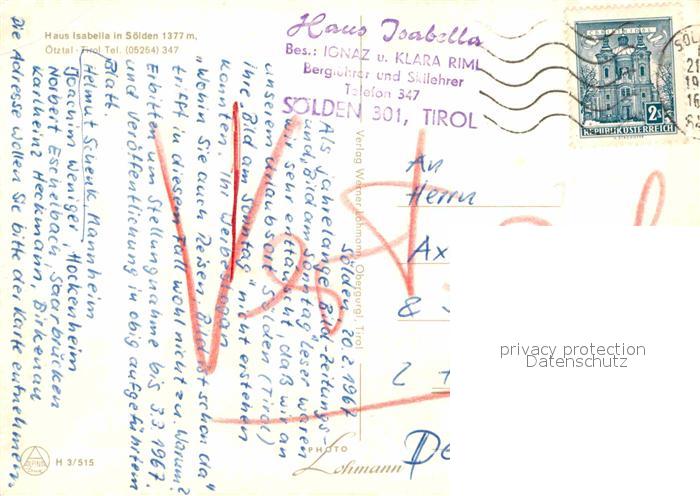 Haus Isabella in Sölden 1377 m,
Ötztal - Tirol Tel. (05254) 347
Haus Isabella
Bes.: IGNAZ u. KLARA RIML
Bergführer und Skilehrer
Telefon 347
SÖLDEN 301, TIROL
2 S
REPUBLIK ÖSTERREICH
SÖL
21
19
16
Sölden 20.2.1967
Als jahrelange Bild-Zeitungs-
und "Bild am Sonntag" Leser waren
wir sehr enttäuscht, daß wir an
unserem Urlaubsort Sölden (Tirol)
ihre "Bild am Sonntag" nicht erstehen
konnten. Ihr Werbeslogan
"Wohin Sie auch Reisen, Bild ist schon da"
trifft in diesem Fall wohl nicht zu. Warum?
Erbitten um Stellungnahme bis 3.3.1967.
und Veröffentlichung in obig aufgeführtem
Blatt.
Helmut Schenk, Mannheim
Joachim Weniger, Hockenheim
Norbert Eschelbach, Saarbrücken
Karlheinz Heckmann, Birkenau
Die Adresse wollen Sie bitte der Karte entnehmen.
Verlag Werner Lohmann, Obergurgl, Tirol
An
Herrn
Ax
&
2
De
privacy protection
Datenschutz
PHOTO
Lohmann
H 3/515